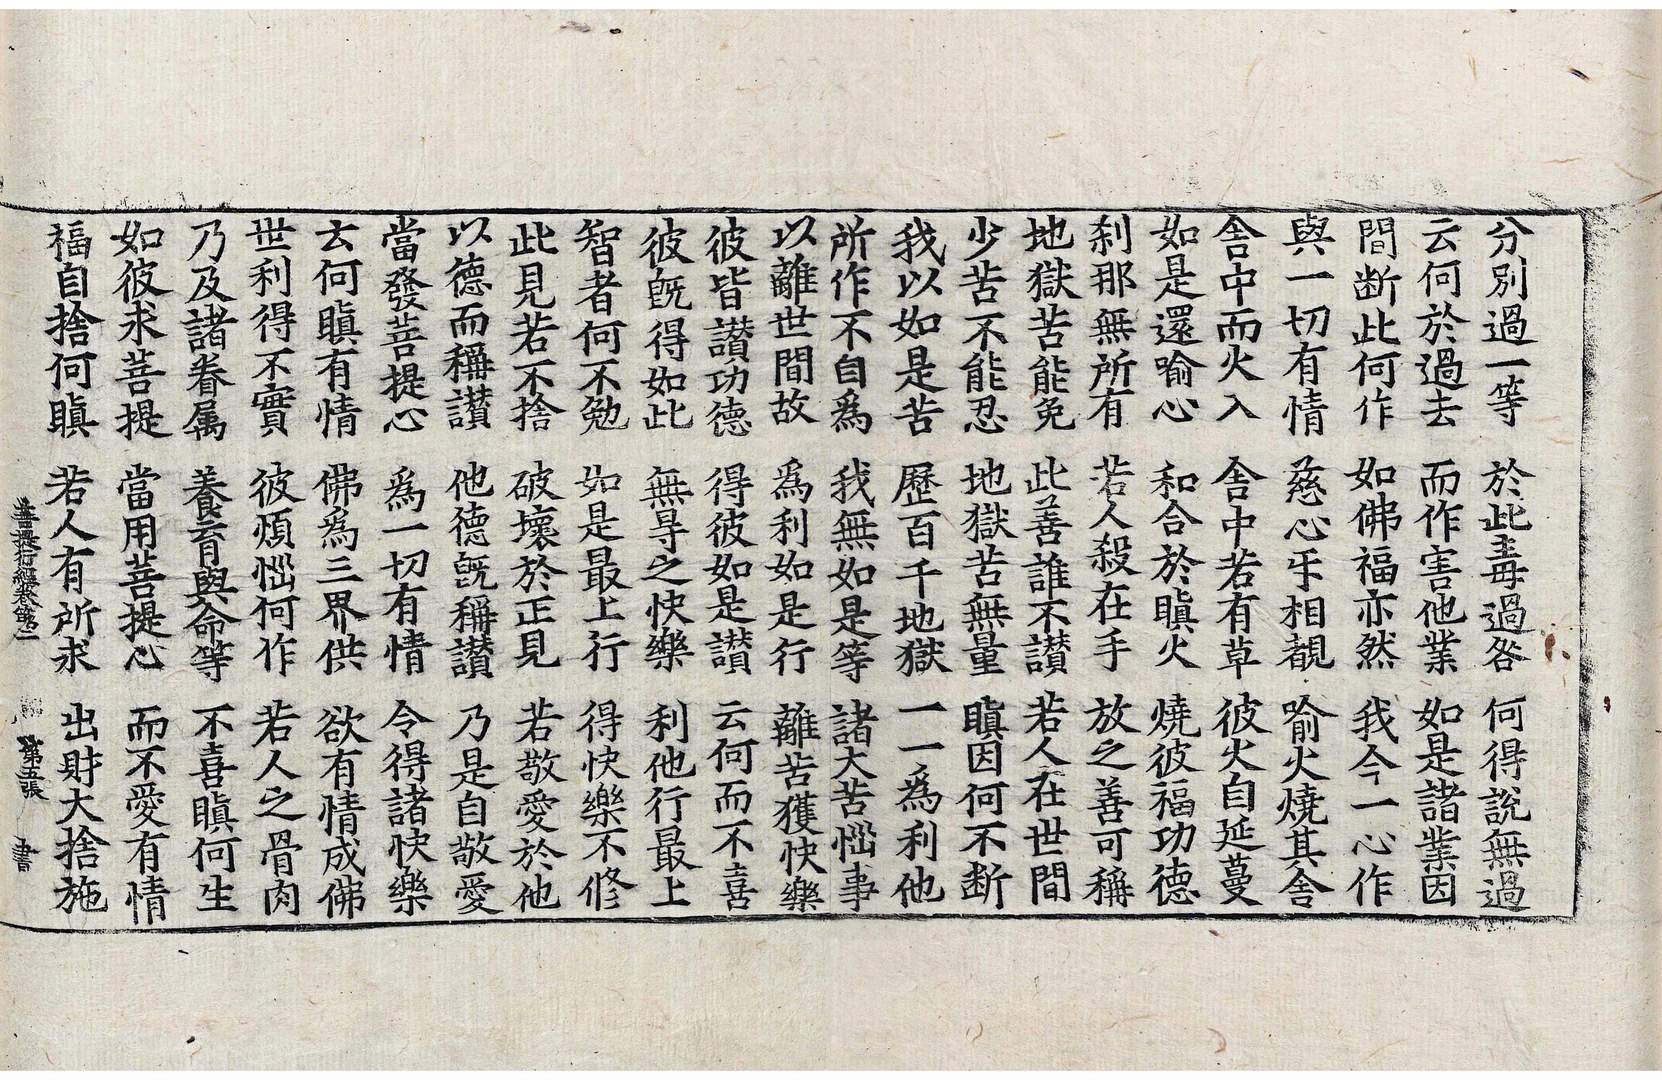 分別過一等 於此毒過咎 何得說無過
云何於過去 而作害他業 如是諸業因
間断此何作 如佛福亦然 我今一心作
與一切有情 慈心牙相覩 喻火燒其舍
舎中而火入 舎中若有草 彼火自延蔓
如是還喻心 和合於瞋火 燒彼福功德
刹那無所有 若人殺在手 放之善可稱
地獄苦能免 此善誰不讃 若人在世間
少苦不能忍 地獄苦無量 瞋因何不断
我以如是苦 歷百千地獄 一一爲利他
所作不自爲 我無如是等 諸大苦惱事
以離世間故 爲利如是行 離苦獲快樂
彼皆讃功德 得彼如是讃 云何而不喜
彼旣得如此 無㝵之快樂 利他行最上
智者何不勉 如是最上行 得快樂不修
此見若不捨 破壞於正見 若敬愛於他
以德而稱讃 他德旣稱讃 乃是自敬愛
當發菩提心 爲一切有情 令得諸快樂
云何瞋有情 佛爲三界供 欲有情成佛
世利得不實 彼煩惱何作 若人之骨肉
乃及諸眷属 養育與命等 不喜瞋何生
如彼求菩提 當用菩提心 而不愛有情
福自捨何瞋 若人有所求 出財大捨施
菩提行經卷第二 第五張